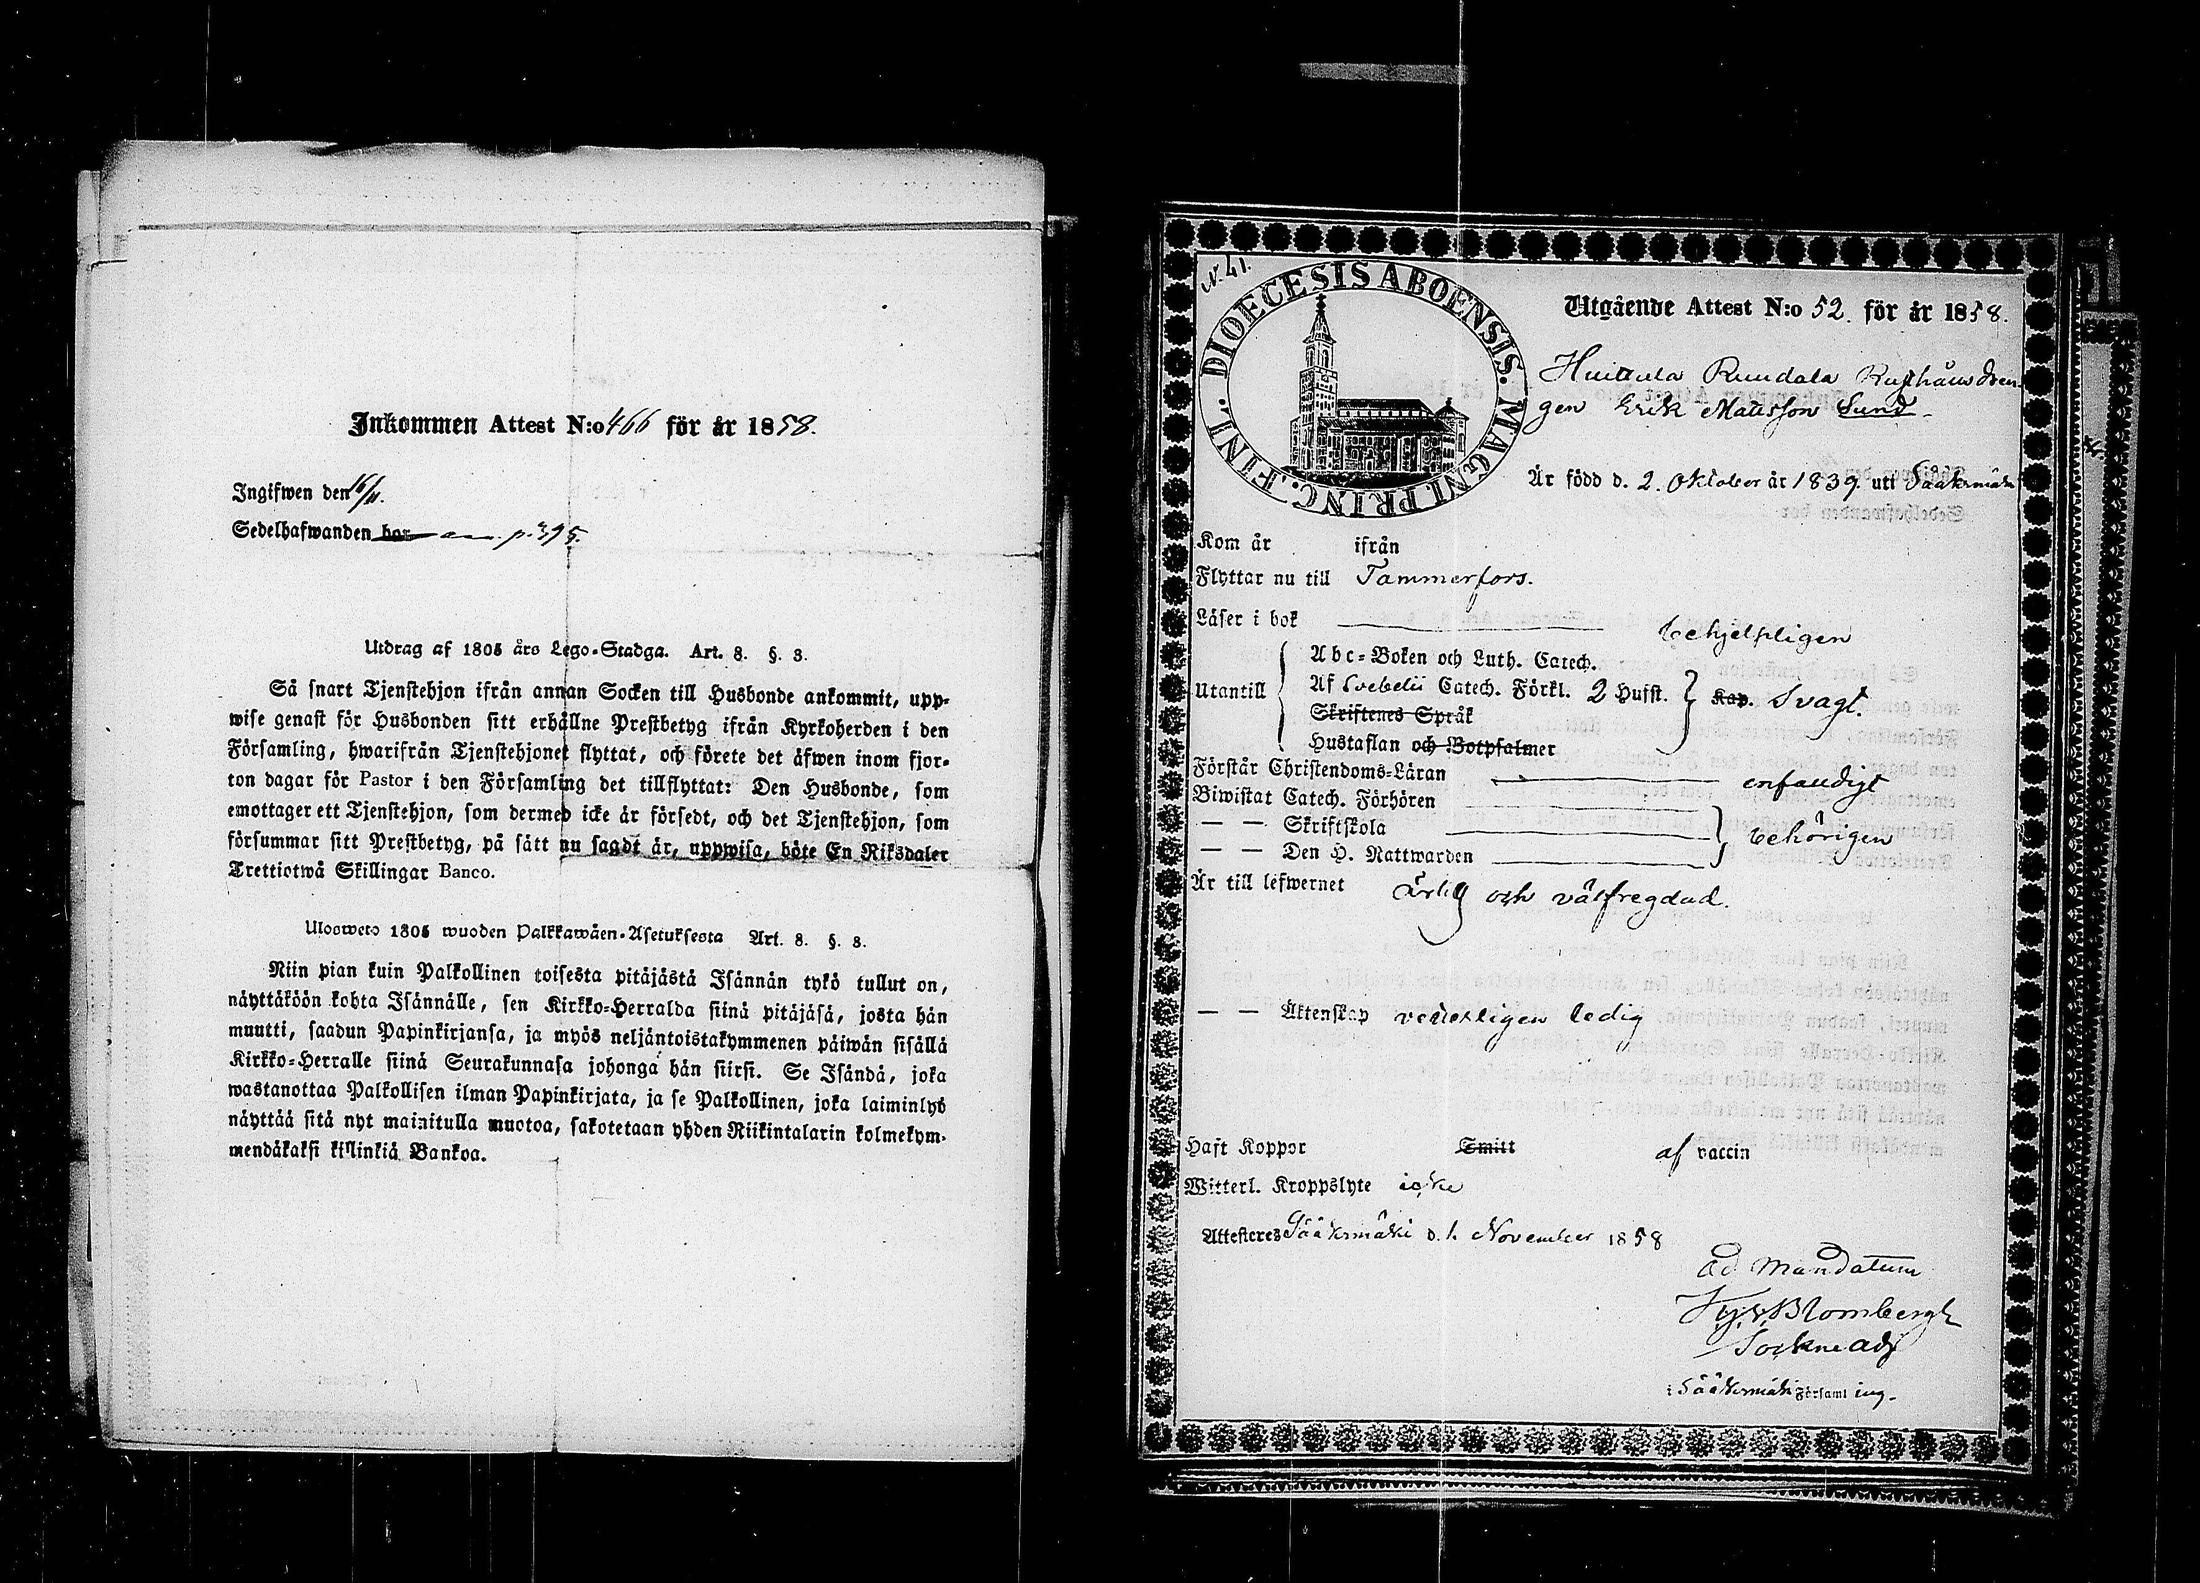 Inkommen Attest N:o 466 för år 1858.
Ingifwen den 16/11.
Sedelhafwanden bor p. 395.
Utdrag af 1805 års Lego-Stadga. Art. 8. §. 3.
Så snart Tjenstehjon ifrån annan Socken till Husbonde ankommit, upp-
wise genast för Husbonden sitt erhållne Prestbetyg ifrån Kyrkoherden i den
Församling, hwarifrån Tjenstehjonet flyttat, och förete det äfwen inom fjor-
ton dagar för Pastor i den Församling det tillflyttat: Den Husbonde, som
emottager ett Tjenstehjon, som dermed icke är försedt, och det Tjenstehjon, som
försummar sitt Prestbetyg, på sätt nu sagdt är, uppwisa, böte En Riksdaler
Trettiotwå Skillingar Banco.
Ulosweto 1805 wuoden Palkkawäen-Asetuksesta Art. 8. §. 3.
Niin pian kuin Palkollinen toisesta pitäjästä Isännän tykö tullut on,
näyttäköön kohta Isännälle, sen Kirkko-Herralda siinä pitäjäsä, josta hän
muutti, saadun Papinkirjansa, ja myös neljäntoistakymmenen päiwän sisällä
Kirkko-Herralle siinä Seurakunnasa johonga hän siirsi. Se Isändä, joka
wastanottaa Palkollisen ilman Papinkirjata, ja se Palkollinen, joka laiminlyö
näyttää sitä nyt mainitulla muotoa, sakotetaan yhden Riikintalarin kolmekym-
mendäkaksi killinkiä Bankoa.
N. 41.
DIOECESIS ABOENSIS. MAGNI. PRINC. FINL.
Utgående Attest N:o 52. för år 1858.
Huittula Rundala Rusthåls dren-
gen Erik Matisson Sund.
Är född d. 2. Oktober år 1839. uti Sääksmäki
Kom år ifrån
Flyttar nu till Tammerfors.
Läser i bok behjelpligen
Utantill { Abc-Boken och Luth. Catech.
Af Svebelii Catech. Förkl. 2 Hufst. } Kap. Svagt.
Skriftenes Språk
Hustaflan och Botpsalmer
Förstår Christendoms-Läran enfaldigt
Biwistat Catech. Förhören
— — Skriftskola } behörigen
— — Den H. Nattwarden
Är till lefwernet ärlig och välfregdad.
— — Äktenskap veterligen ledig
Haft Koppor Smitt af vaccin
Witterl. Kroppslyte icke
Attesteres Sääksmäki d. 1. November 1858
Ad Mandatum
Blombergh
Sockne adj
i Sääksmäki Församling.